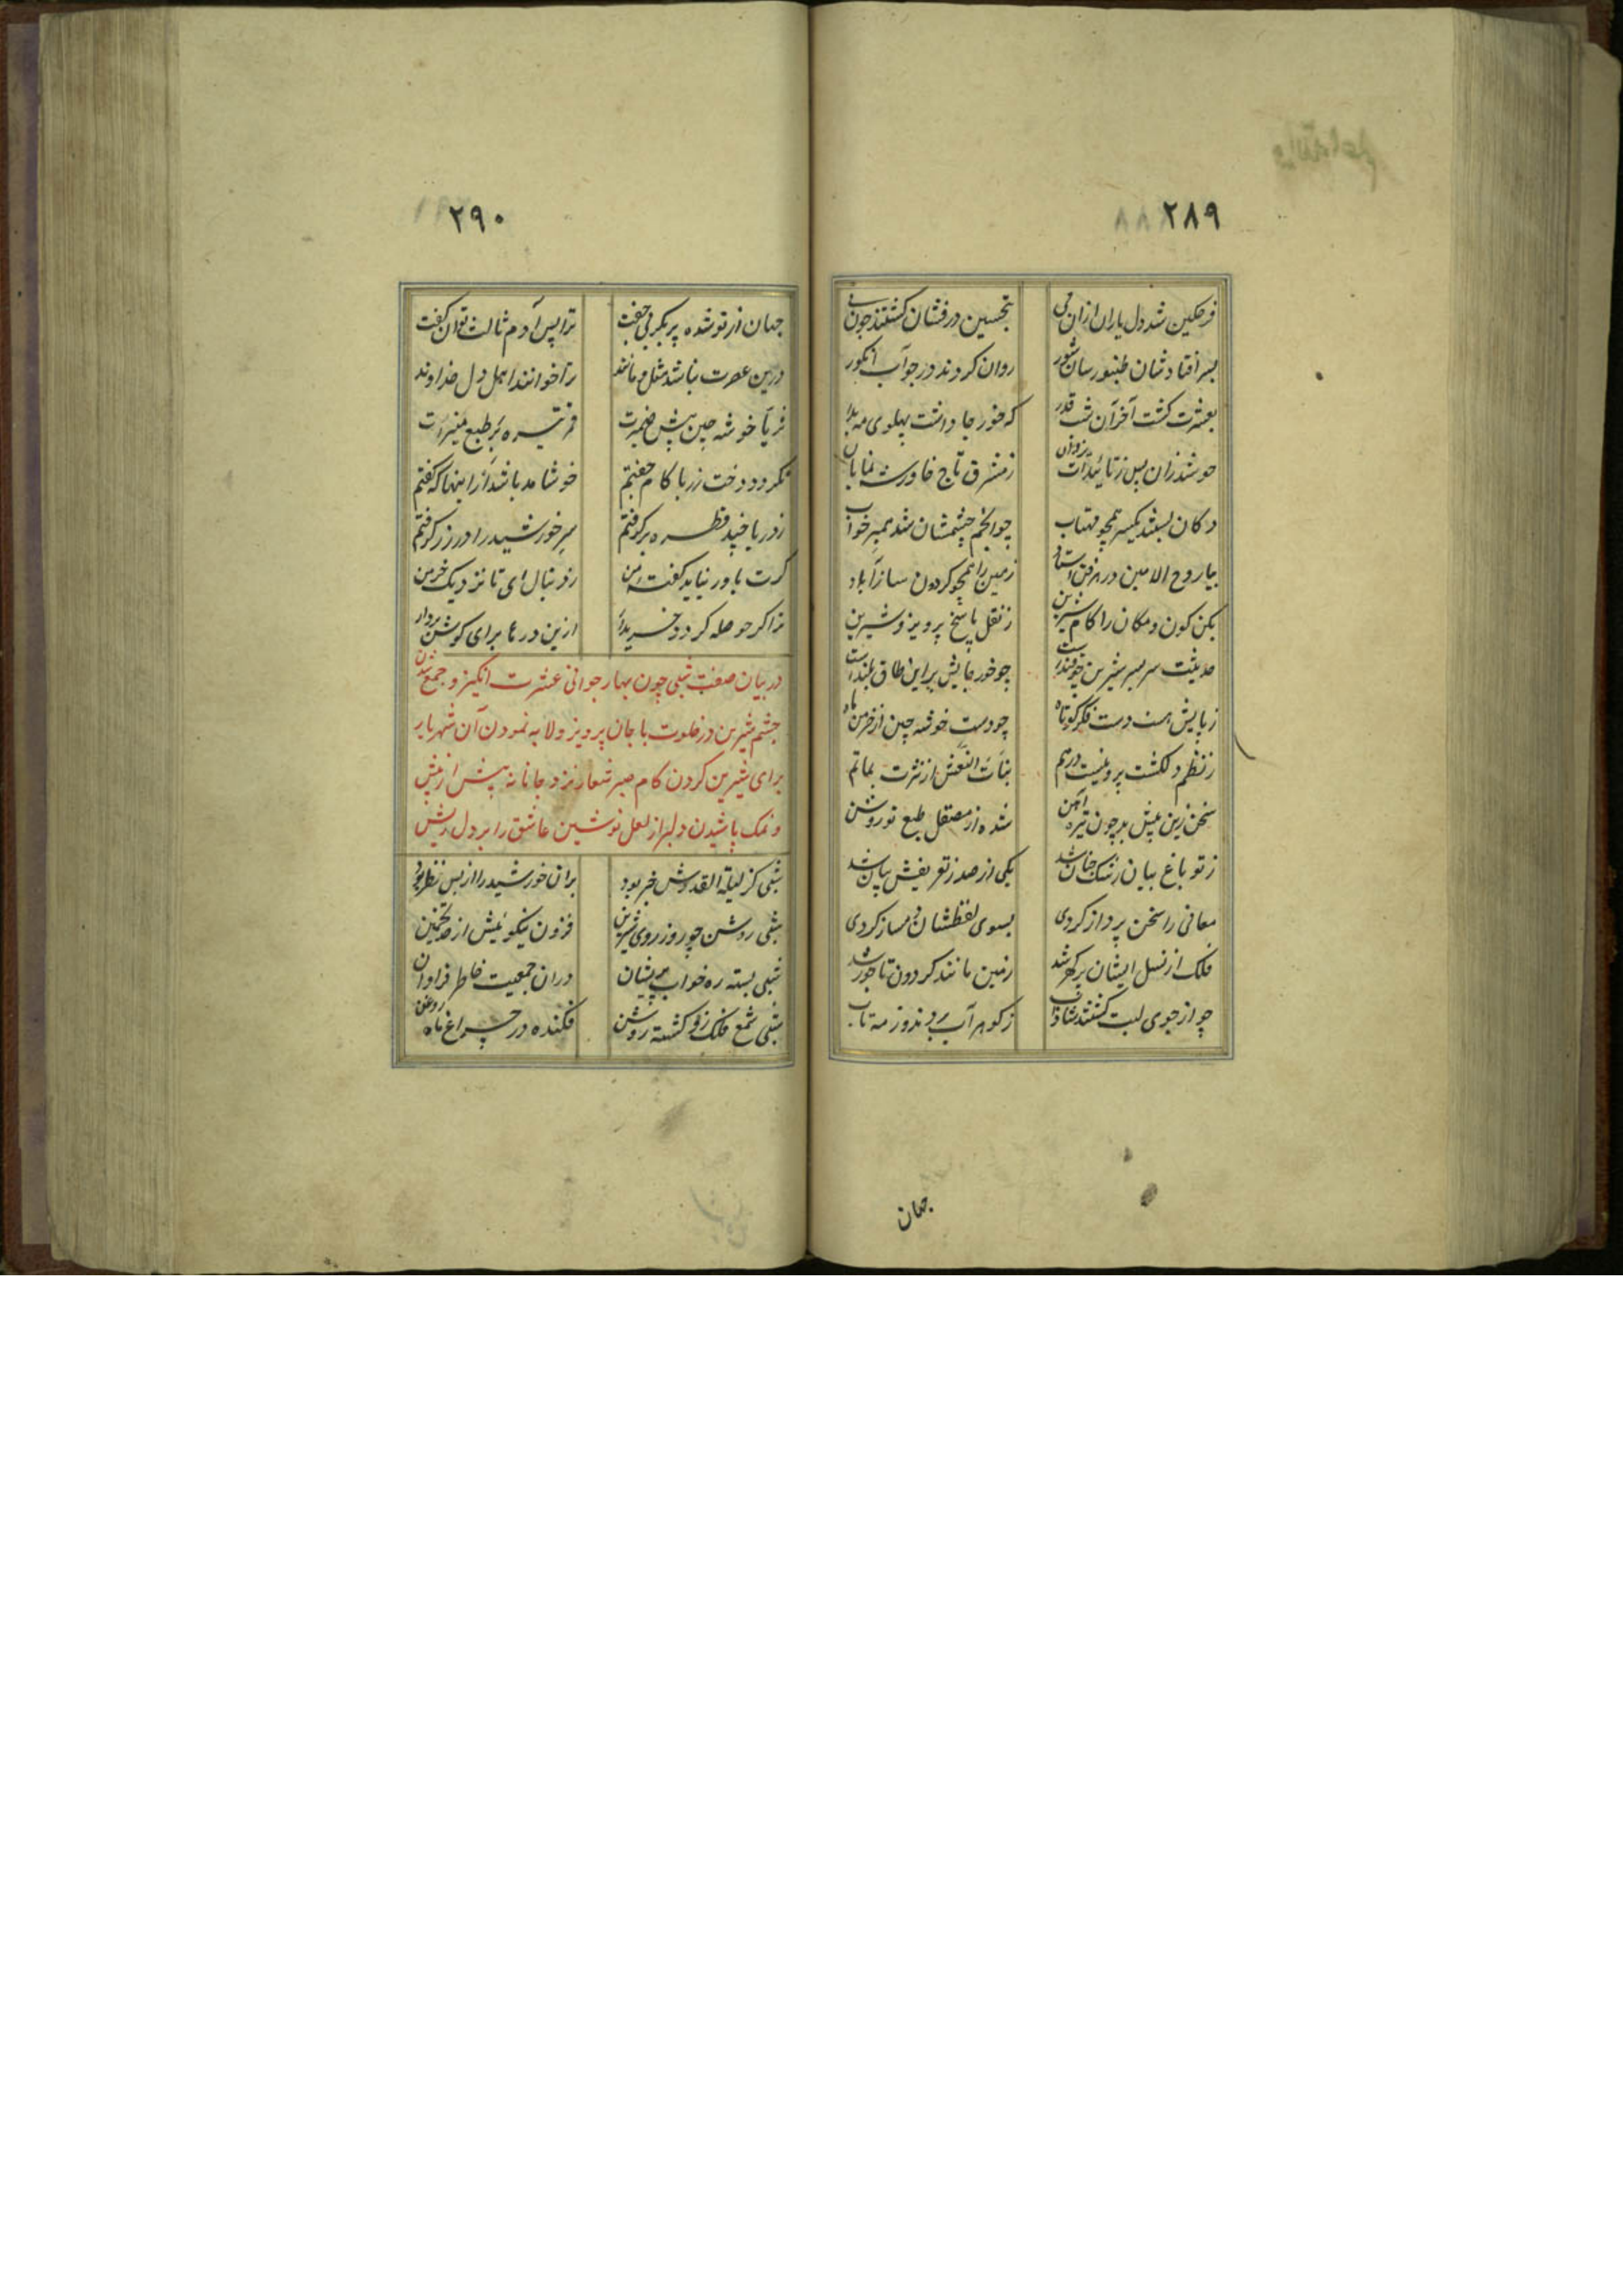 ٢٨٩
فرحگین شد دل یاران ازان می بتحسین درفشان گشتند چون نی
بسر افتاد شان طنبور سان شور روان کردند در جو آب انگور
بعشرت گشت آخر آن شب قدر که خور جا داشت پهلوی مه بدر
چو شد زان پس ز تائیدات یزدان ز مشرق تاج خاور شه نمایان
دکان بستند یکسر همچو مهتاب چو انجم چشمشان شد بهر خواب
بیا روح الامین در هر فن استاد زمین را همچو گردون ساز آباد
بکن کون و مکان را کام شیرین ز نقل پاسخ پرویز و شیرین
حدیثت سربسر شیرین چو قندست چو خور جایش بر این طاق بلندست
زبایش هست دست فکر کوتاه چو دست خوشه چین از خرمن ماه
ز نظم دلکشت پروینست درهم بنات النعش از نثرت بماتم
سخن زین پیش بد چون تیره آهن شده از مصقل طبع تو روشن
ز تو باغ بیان رشک جنان شد یکی از صد ز تعریفش بیان شد
معانی را سخن پرداز کردی بسوی لفظشان دمساز کردی
فلک از نسل ایشان پر گهر شد زمین مانند گردون تاجور شد
چو از جوی لبت گشتند شاداب ز گوهر آب بردند و ز مه تاب
جهان
٢٩٠
جهان از تو شده پر بکر بی جفت ترا پس آدم ثالث توان گفت
درین عصرت نباشد مثل و مانند ترا خوانند اهل دل خداوند
ثریا خوشه چین پیش ضمیرت قمر تیره بر طبع منیرت
نگردد دخت رز با کام جفتم خوشامد باشد از اینها که گفتم
ز دریا چند قطره برگرفتم سر خورشید را در زر گرفتم
گرت باور نیاید گفته من رو دنبال ای تا نزدیک خرمن
نداگر حوصله گردد خریدار ازین درها برای گوش بردار
در بیان صفت شبی چون بهار جوانی عشرت انگیز و جمع شدن
چشم شیرین در خلوت با جان پرویز و لابه نمودن آن شهریار
برای شیرین کردن کام صبر شعار نزد جانانه بیش از پیش
و نمک پاشیدن دلبر از لعل نوشین عاشق را بر دل ریش
شبی کز لیلة القدرش خبر بود بران خورشید را از بس نظر بود
شبی روشن چو روز روی شیرین فزون نیکوئیش از حد تخمین
شبی بسته ره خواب پریشان دران جمعیت خاطر فراوان
شبی شمع فلک زو گشته روشن فکنده در چراغ ماه روغن